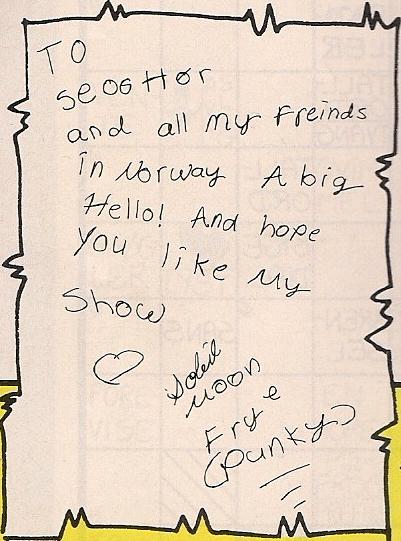 To
Seog Hør
and all my Freinds
in Norway A big
Hello! And hope
You like My
Show
Soleil
Moon
Frye
(Punky)